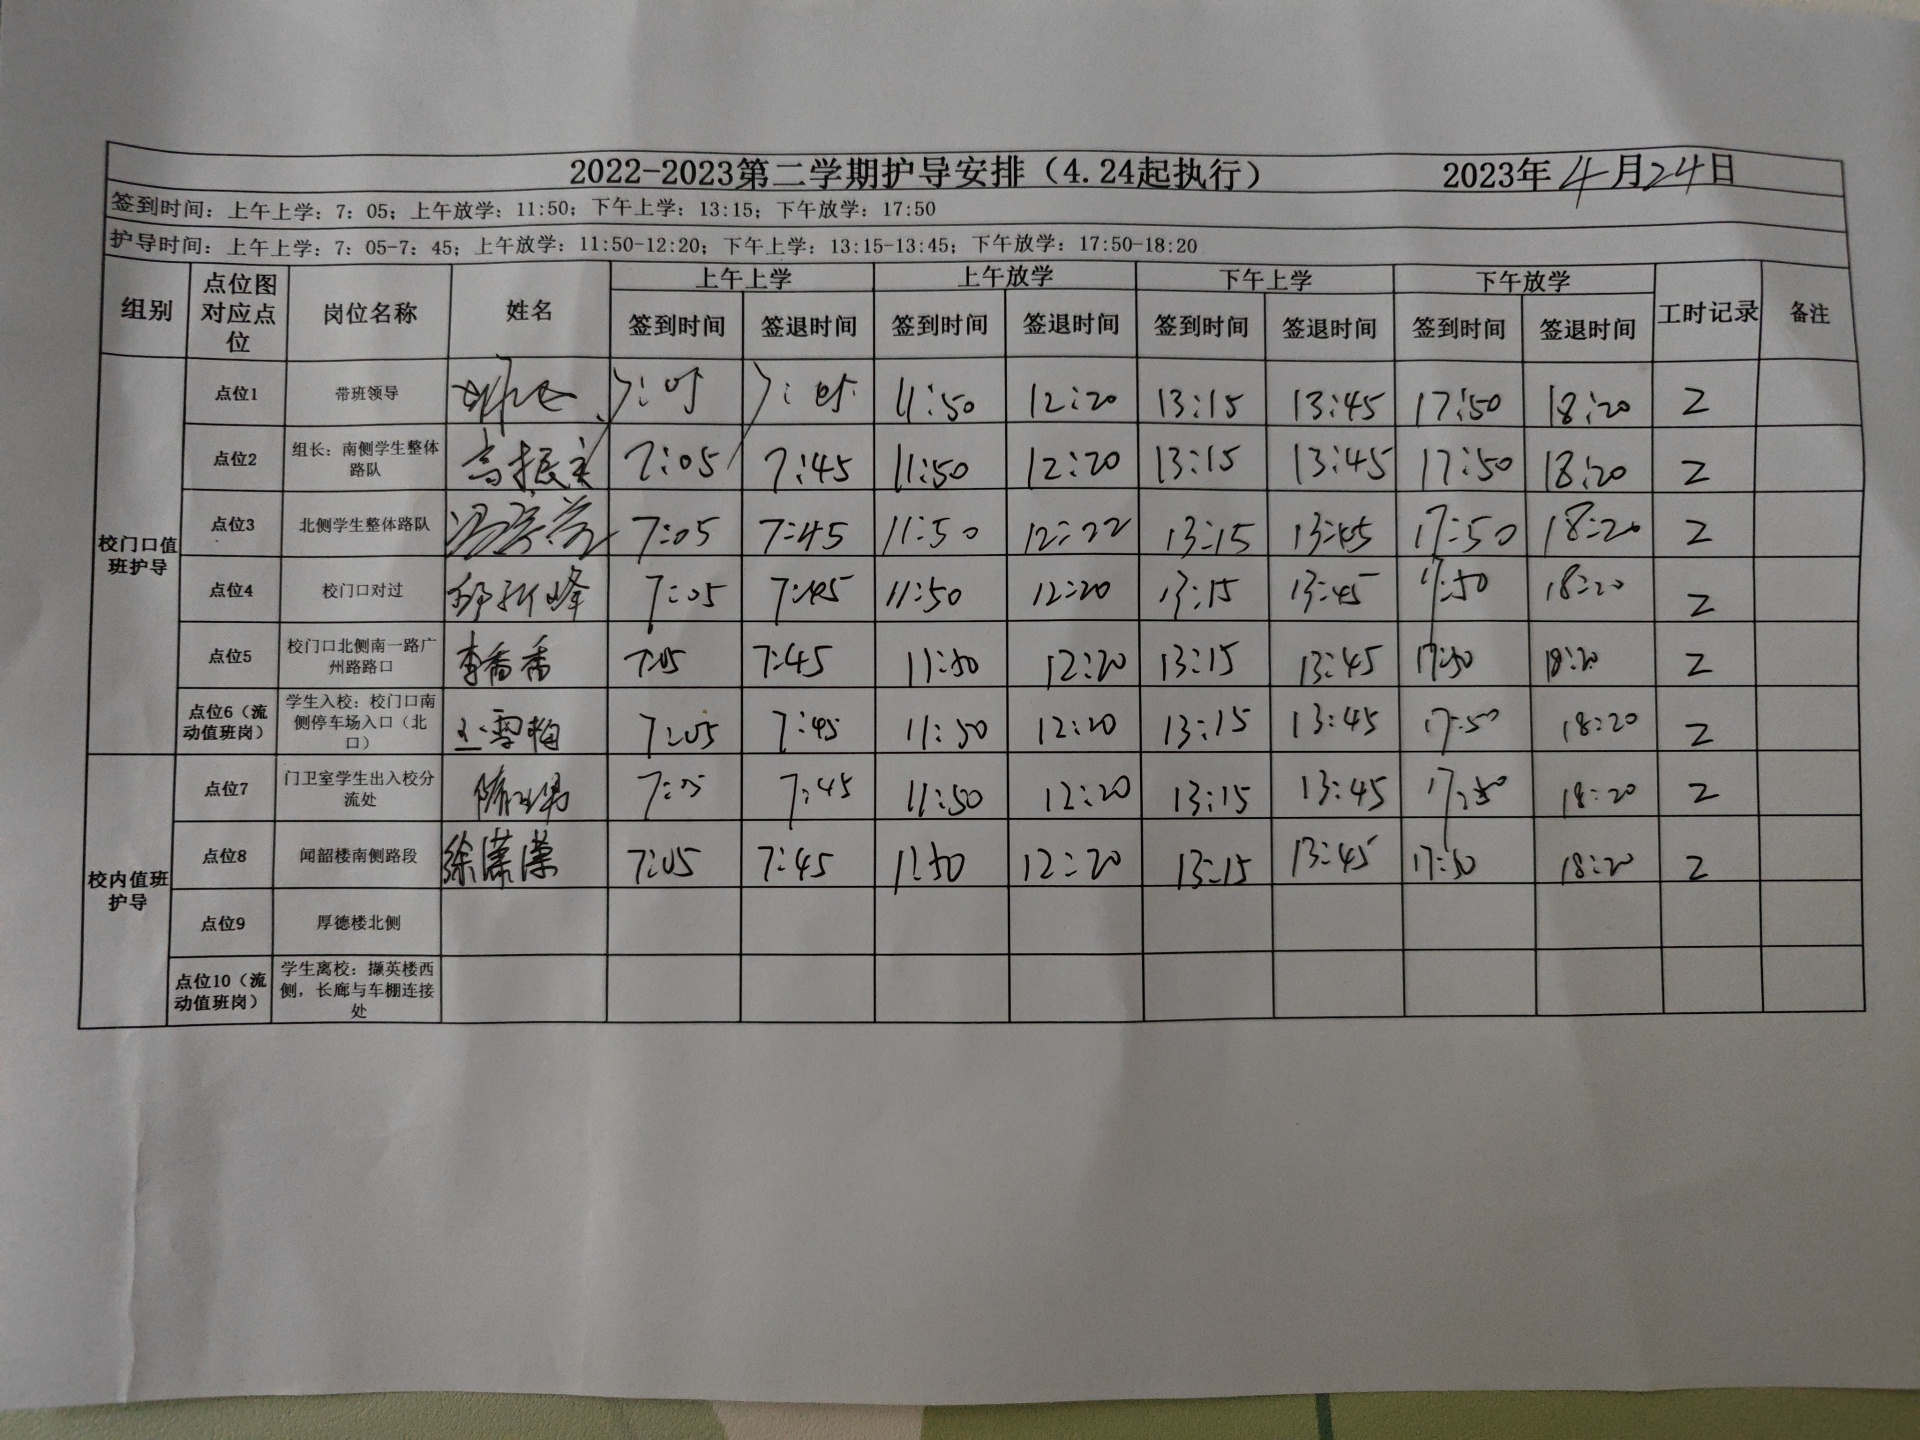 2022-2023第二学期护导安排（4.24起执行） 2023年4月24日
签到时间：上午上学：7：05；上午放学：11:50；下午上学：13:15；下午放学：17:50
护导时间：上午上学：7：05-7：45；上午放学：11:50-12:20；下午上学：13:15-13:45；下午放学：17:50-18:20
组别 点位图对应点位 岗位名称 姓名 上午上学 上午放学 下午上学 下午放学 工时记录 备注
签到时间 签退时间 签到时间 签退时间 签到时间 签退时间 签到时间 签退时间
校门口值班护导
点位1 带班领导 7:05 11:50 12:20 13:15 13:45 17:50 18:20 2
点位2 组长：南侧学生整体路队 7:05 7:45 11:50 12:20 13:15 13:45 17:50 18:20 2
点位3 北侧学生整体路队 7:05 7:45 11:50 12:22 13:15 13:45 17:50 18:20 2
点位4 校门口对过 7:05 7:45 11:50 12:20 13:15 13:45 17:50 18:20 2
点位5 校门口北侧南一路广州路路口 李香香 7:05 7:45 11:50 12:20 13:15 13:45 17:50 18:20 2
点位6（流动值班岗） 学生入校：校门口南侧停车场入口（北口） 王雪梅 7:05 7:45 11:50 12:20 13:15 13:45 17:50 18:20 2
校内值班护导
点位7 门卫室学生出入校分流处 7:05 7:45 11:50 12:20 13:15 13:45 17:50 18:20 2
点位8 闻韶楼南侧路段 徐潇潇 7:05 7:45 11:50 12:20 13:15 13:45 17:50 18:20 2
点位9 厚德楼北侧
点位10（流动值班岗） 学生离校：撷英楼西侧，长廊与车棚连接处